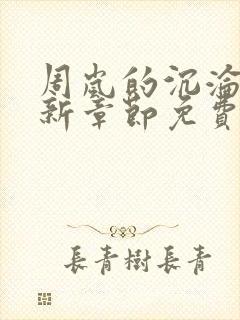 周岚的沉淪
新章節免費
長青樹長青